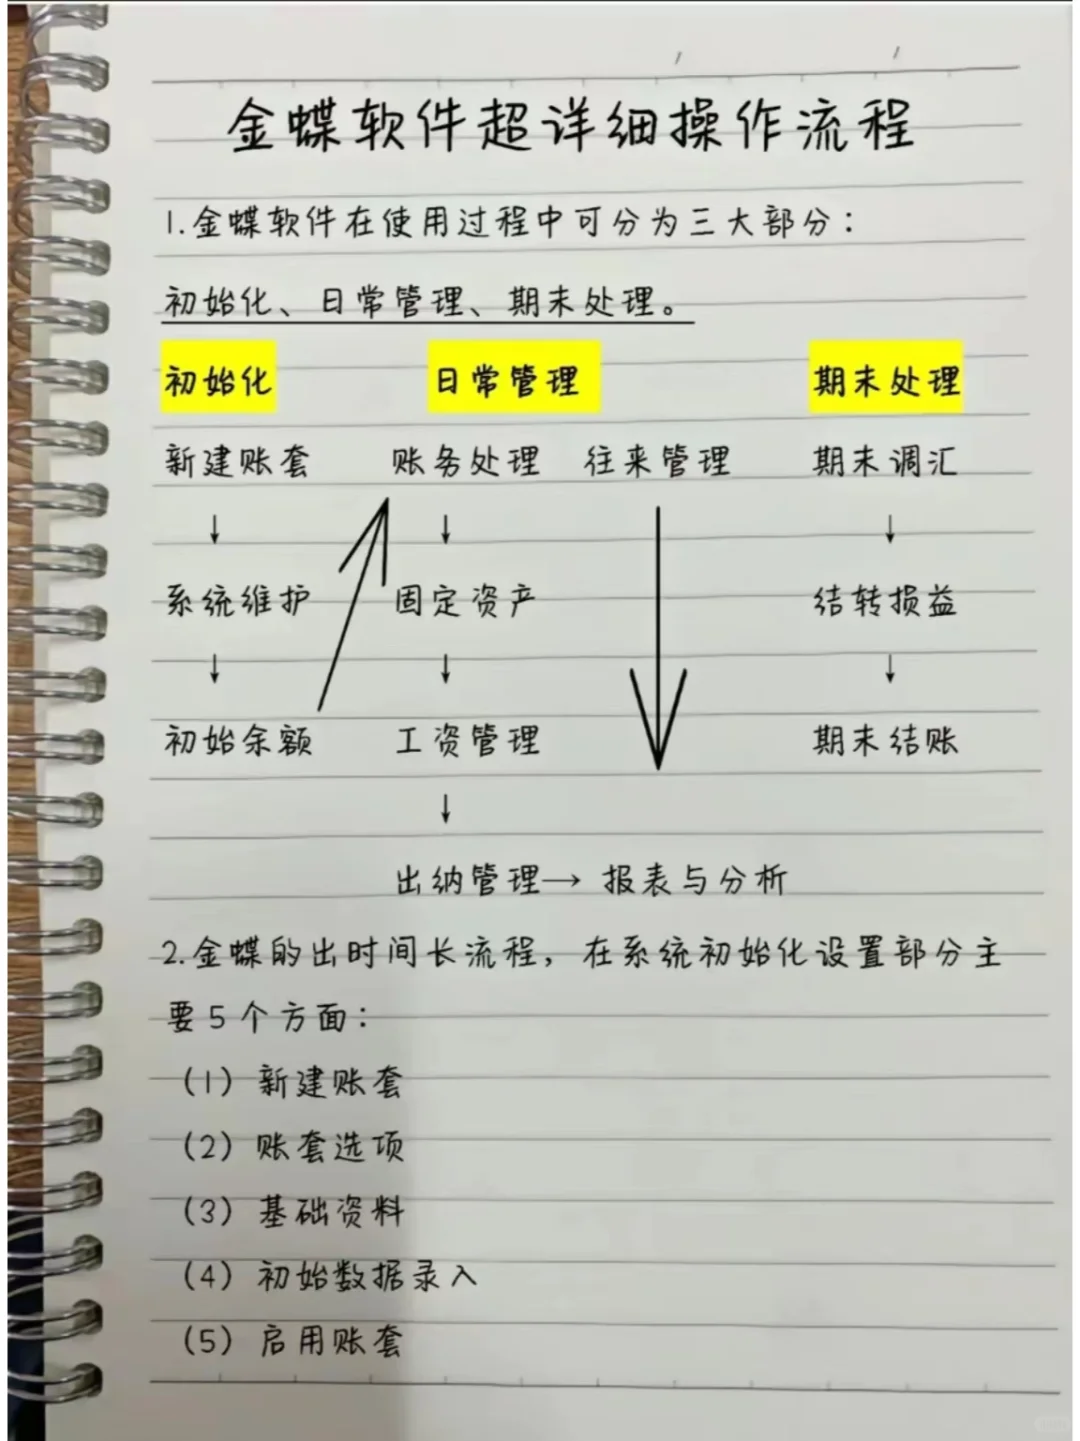 金蝶软件超详细操作流程
1.金蝶软件在使用过程中可分为三大部分：
初始化、日常管理、期末处理。
初始化 日常管理 期末处理
新建账套 账务处理 往来管理 期末调汇
↓ ↓ ↓
系统维护 固定资产 结转损益
↓ ↓ ↓
初始余额 工资管理 期末结账
↓
出纳管理→ 报表与分析
2.金蝶的出时间长流程，在系统初始化设置部分主
要5个方面：
（1）新建账套
（2）账套选项
（3）基础资料
（4）初始数据录入
（5）启用账套